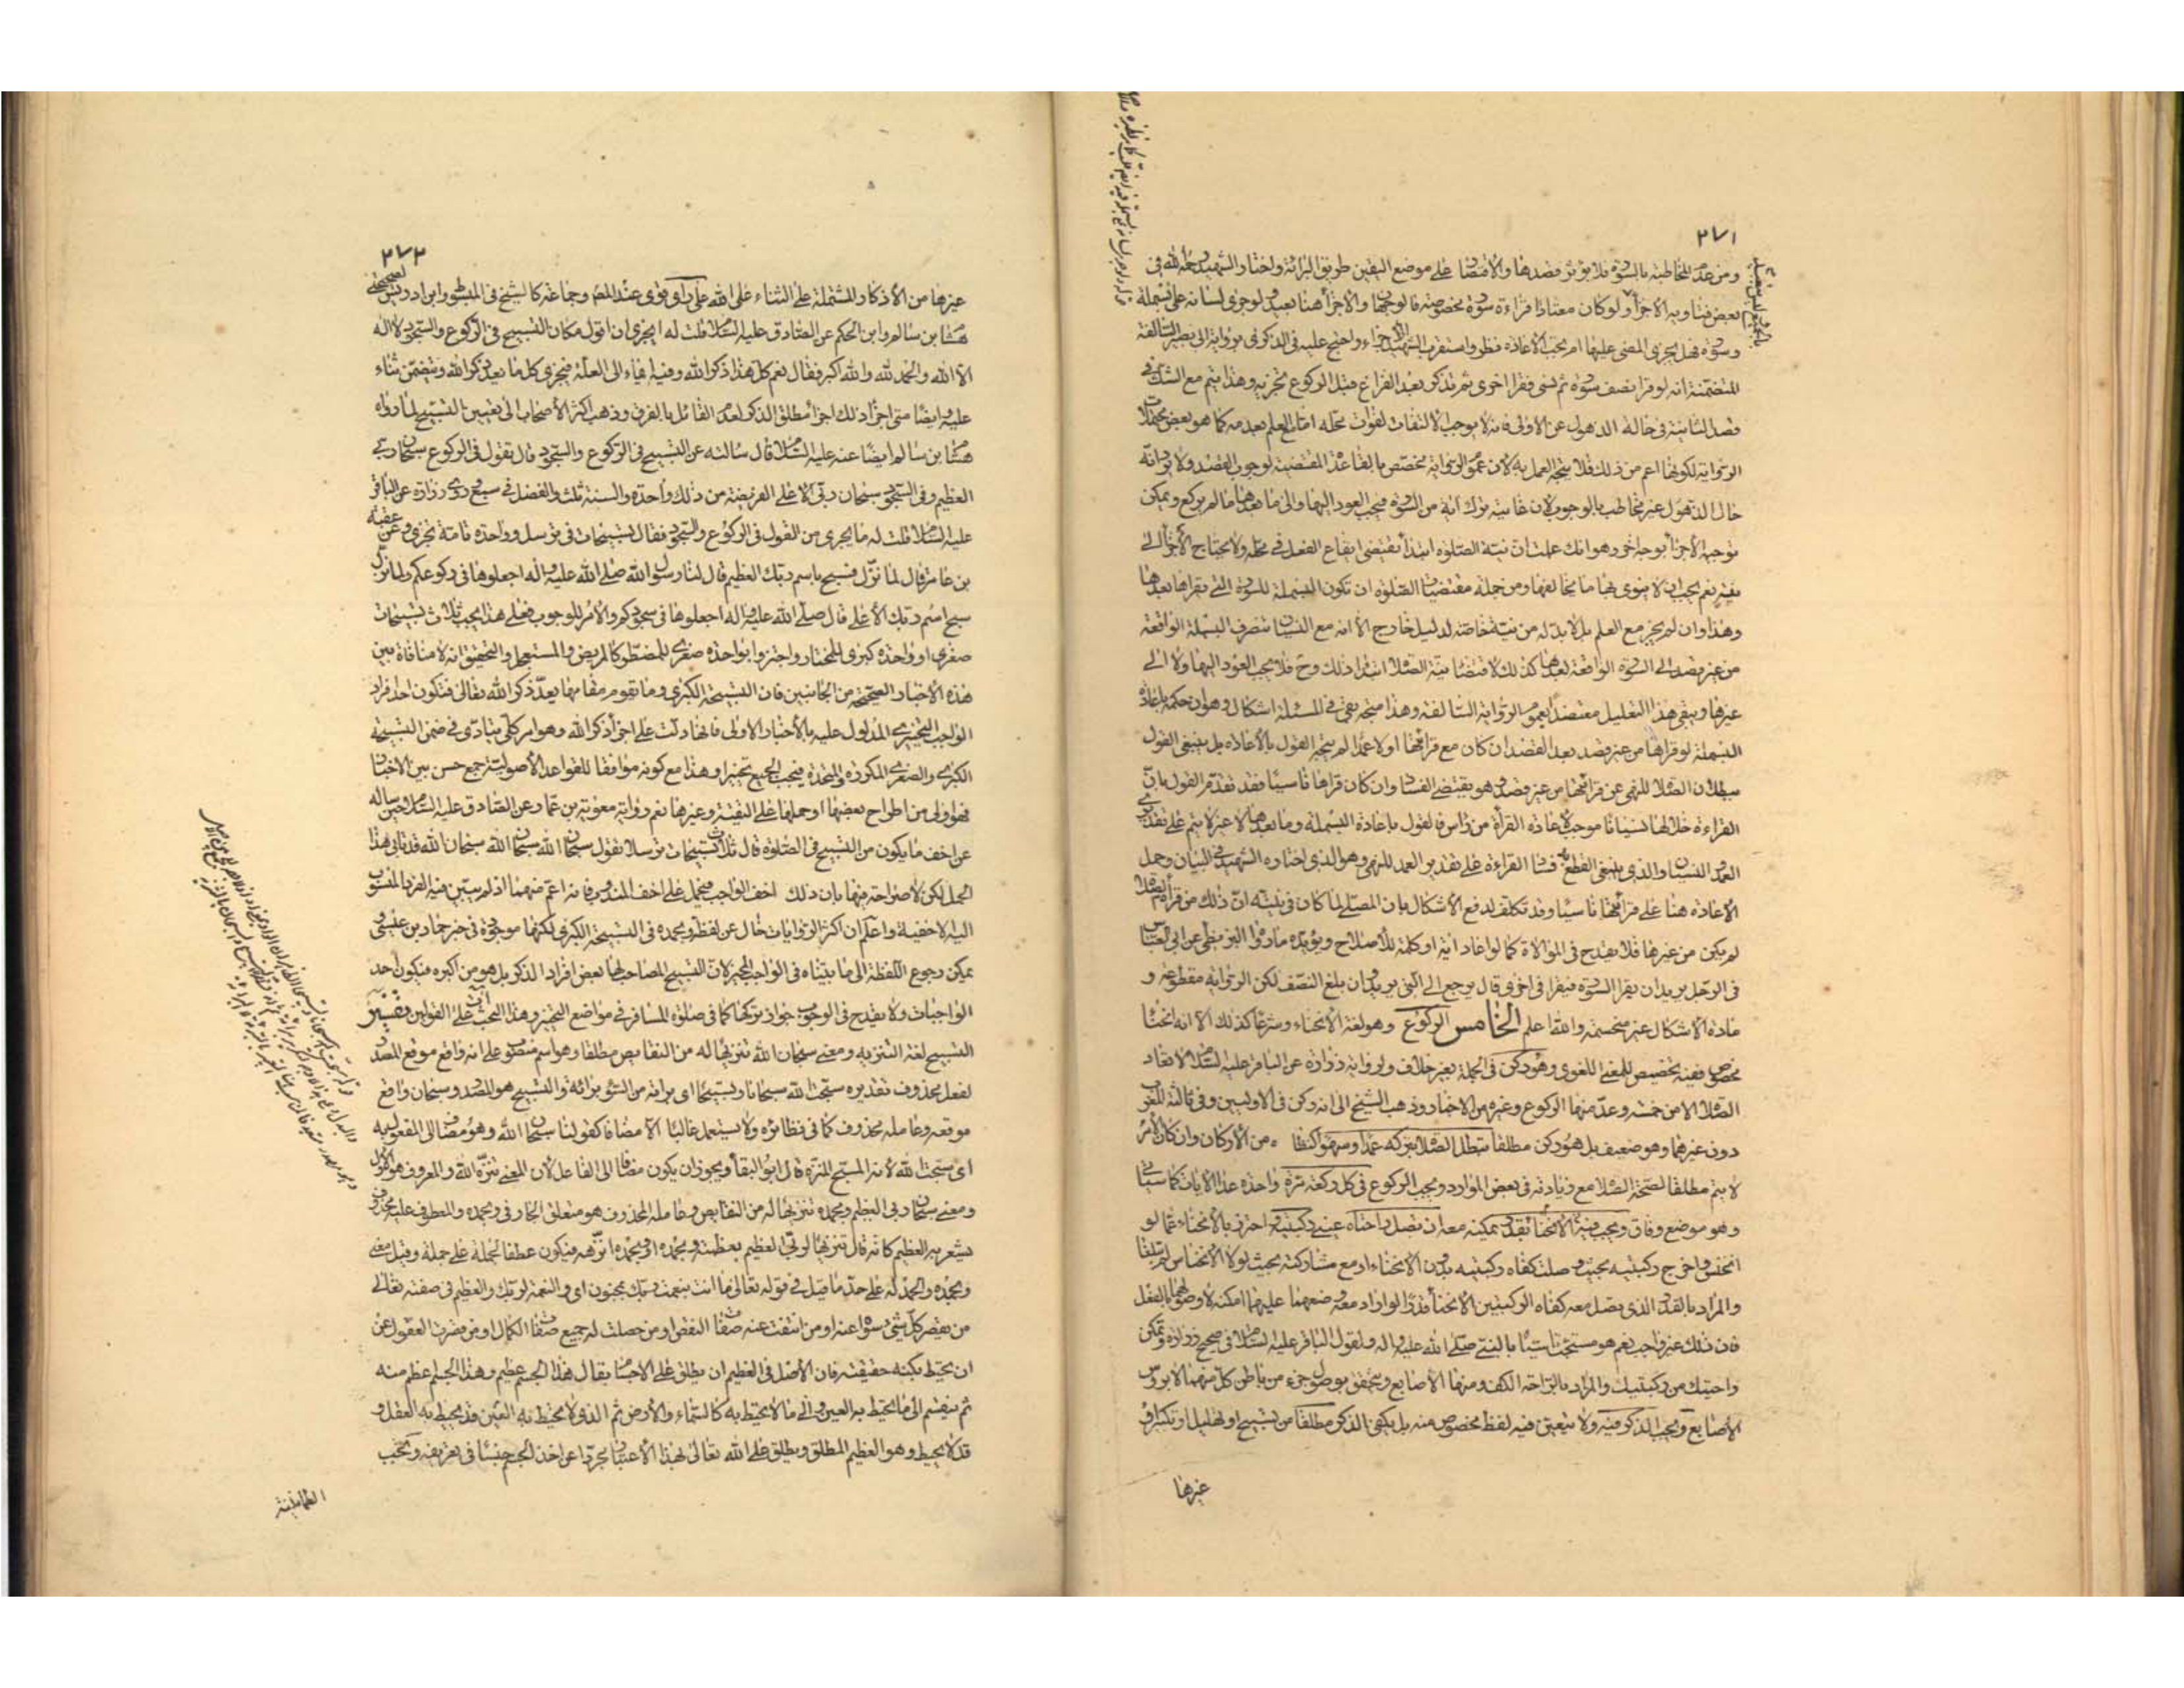 ٢٧١
ومن عدم المخاطبة بالسورة فلا يؤثر قصدها والاقتضا على موضع اليقين طريق البرائة واختار الشهيد رحمه الله في
بعض فتاويه الاجزأ ولو كان معتادا قراءة سورة مخصوصة فالوجهان والاجزأ هنا بعيد ولو جرى لسانه على بسملة
وسورة فهل يجزى المضى عليها ام يجب الاعادة نظر واستقرب الشهيد الاجزاء واحتج عليه في الذكرى برواية ابى بصير السالفة
المتضمنة انه لو قرا نصف سورة ثم نسى فقرا اخرى ثم تذكر بعد الفراغ قبل الركوع تجزيه وهذا يتم مع الشك في
قصد الثانية في حالة الذهول عن الاولى فانه لا يوجب الالتفات لفوات محله امامع العلم بعدمه كما هو بعض محتملات
الرواية لكونها اعم من ذلك فلا يتجه العمل به لان عموم الرواية مخصص بالقاعدة المقتضية لوجوب القصد ولا يرد انه
حال الذهول غير مخاطب بالوجوب لان غايته ترك اية من السورة فيجب العود اليها والى ما بعدها ما لم يركع ويمكن
توجيه الاجزأ بوجه اخر وهو انك علمت ان نية الصلوة ابتدأ يقتضى ايقاع الفعل في محله ولا يحتاج الاجزأ الى
نية نعم يجب ان لا ينوى بها ما يخالفها ومن جملة مقتضيات الصلوة ان تكون البسملة للسورة التى يقراها بعدها
وهذا وان لم يجز مع العلم بل لا بد له من نية خاصة لدليل خارج الا انه مع النسيان تنصرف البسملة الواقعة
من غير قصد الى السورة الواقعة بعدها كذلك لاقتضاء نية الصلاة ابتدأ ذلك وح فلا يجب العود اليها ولا الى
غيرها ويبقى هذا التعليل معتضدا بعموم الرواية السالفة وهذا متجه بقى في المسئلة اشكال وهو ان حكمه باعادة
البسملة لو قراها من غير قصد بعد القصد ان كان مع قرائتها اولا عمدا لم يتجه القول بالاعادة بل ينبغى القول
ببطلان الصلاة للنهى عن قرائتها من غير قصد وهو يقتضى الفساد وان كان قراها ناسيا فقد تقدم القول بان
القراءة خلالها نسيانا موجب لاعادة القرأة من راس فالقول باعادة البسملة وما بعدها لا غير لا يتم على تقديرى
العمد والنسيان والذى ينبغى القطع به فساد القراءة على تقدير العمد للنهى وهو الذى اختاره الشهيد في البيان وحمل
الاعادة هنا على قرائتها ناسيا وقد تكلف لدفع الاشكال بان المصلى لما كان في نيته ان ذلك من قرأة الصلاة
لم يكن من غيرها فلا يقدح في الموالاة كما لو اعاد اية او كلمة للاصلاح ويؤيده ما رواه البزنطى عن ابى العباس
في الرجل يريد ان يقرا السورة فيقرا في اخرى قال يرجع الى التى يريد وان بلغ النصف لكن الرواية مقطوعة و
مادة الاشكال غير منحسمة والله اعلم الخامس الركوع وهو لغة الانحناء وشرعا كذلك الا انه انحنا
مخصوص ففيه تخصيص للمعنى اللغوى وهو ركن في الجملة بغير خلاف ولرواية زرارة عن الباقر عليه السلام لا تعاد
الصلاة الا من خمسة وعد منها الركوع وغيره من الاخبار وذهب الشيخ الى انه ركن في الاوليين وفى ثالثة المغرب
دون غيرهما وهو ضعيف بل هو ركن مطلقا تبطل الصلاة بتركه عمدا وسهوا كنظائره من الاركان وان كان الامر
لا يتم مطلقا لصحة الصلاة مع زيادته في بعض الموارد ويجب الركوع في كل ركعة مرة واحدة عدا الايات كما سياتى
وهو موضع وفاق ويجب فيه الانحنا بقدر يمكنه معه ان تصل راحتاه عينى ركبتيه احترز بالانحناء عما لو
انخنس واخرج ركبتيه بحيث وصلت كفاه ركبتيه بدون الانحناء او مع مشاركته بحيث لولا الانخناس لم تبلغا
والمراد بالقدر الذى يصل معه كفاه الركبتين الانحنأ قدرا لو اراد معه وضعهما عليهما امكنه لا وصولهما بالفعل
فان ذلك غير واجب نعم هو مستحب تاسيا بالنبى صلى الله عليه واله ولقول الباقر عليه السلام في صحيح زرارة وتمكن
راحتيك من ركبتيك والمراد بالراحة الكف ومنها الاصابع ويتحقق بوصول جزء من باطن كل منهما لا برؤس
الاصابع ويجب الذكر فيه ولا يتعين فيه لفظ مخصوص منه بل يكفى الذكر مطلقا من تسبيح او تهليل او تكبير او
غيرها
٢٧٢
غيرها من الاذكار المشتملة على الثناء على الله على راى قوى عند المص وجماعة كالشيخ في المبسوط وابن ادريس لصحيحتى
هشام بن سالم وابن الحكم عن الصادق عليه السلام قلت له ايجزى ان اقول مكان التسبيح في الركوع والسجود لا اله
الا الله والحمد لله والله اكبر فقال نعم كل هذا ذكر الله وفيه ايماء الى العلة فيجزى كل ما يعد ذكر الله ويتضمن ثناء
عليه وايضا متى اجزأ ذلك اجزأ مطلق الذكر لعدم القائل بالفرق وذهب اكثر الاصحاب الى تعيين التسبيح لما رواه
هشام بن سالم ايضا عنه عليه السلام قال سالته عن التسبيح في الركوع والسجود قال تقول في الركوع سبحان ربى
العظيم وفى السجود سبحان ربى الاعلى الفريضة من ذلك واحدة والسنة ثلث والفضل في سبع وروى زرارة عن الباقر
عليه السلام قلت له ما يجزى من القول في الركوع والسجود فقال تسبيحات في ترسل وواحدة تامة تجزى وعن عقبة
بن عامر قال لما نزل فسبح باسم ربك العظيم قال لنا رسول الله صلى الله عليه واله اجعلوها في ركوعكم ولما نزل
سبح اسم ربك الاعلى قال صلى الله عليه واله اجعلوها في سجودكم والامر للوجوب فعلى هذا يجب ثلاث تسبيحات
صغرى او واحدة كبرى للمختار واجتزوا بواحدة صغرى للمضطر كالمريض والمستعجل والتحقيق انه لا منافاة بين
هذه الاخبار الصحيحة من الجانبين فان التسبيحة الكبرى وما تقوم مقامها يعد ذكر الله تعالى فتكون احد افراد
الواجب التخييرى المدلول عليه بالاخبار الاولى فانها دلت على اجزأ ذكر الله وهو امر كلى يتادى في ضمن التسبيحة
الكبرى والصغرى المكررة والمتحدة فيجب الجميع تخييرا وهذا مع كونه موافقا للقواعد الاصولية جمع حسن بين الاخبار
فهو اولى من اطراح بعضها او حملها على التقية وغيرها نعم رواية معوية بن عمار عن الصادق عليه السلام حين ساله
عن اخف ما يكون من التسبيح في الصلوة قال ثلاث تسبيحات ترسلا تقول سبحان الله سبحان الله سبحان الله قد تابى هذا
الحمل لكن لا صراحة فيها بان ذلك اخف الواجب فيحمل على اخف المندوب فانه اعم منهما اذ لم يبين فيه الفرد المنسوب
اليه الاخفية واعلم ان اكثر الروايات خال عن لفظ وبحمده في التسبيحة الكبرى لكنها موجودة في خبر حماد بن عيسى و
يمكن رجوع اللفظة الى ما بيناه في الواجب المخير لان التسبيح المصاحب لها بعض افراد الذكر بل هو من اكبره فيكون احد
الواجبات ولا يقدح في الوجوب جواز تركها كما في صلوة المسافر في مواضع التخيير وهذا البحث ات على القولين وتفسير
التسبيح لغة التنزيه ومعنى سبحان الله تنزيها له من النقايص مطلقا وهو اسم منصوب على انه واقع موقع المصدر
لفعل محذوف تقديره سبحت الله سبحانا وتسبيحا اى براته من السوء برائة والتسبيح هو المصدر وسبحان واقع
موقعه وعامله محذوف كما في نظائره ولا يستعمل غالبا الا مضافا كقولنا سبحان الله وهو مضاف الى المفعول به
اى سبحت الله لانه المسبح المنزه قال ابو البقأ ويجوز ان يكون مضافا الى الفاعل لان المعنى تنزه الله والمعروف هو الاول
ومعنى سبحان ربى العظيم وبحمده تنزيها له من النقايص وعامله المحذوف هو متعلق الجار في وبحمده والمعطوف عليه محذوف
يشعر به العظيم كانه قال تنزيها لربى العظيم بعظمته وبحمده او وبحمده انزهه فيكون عطفا لجملة على جملة وقيل معنى
وبحمده والحمد له على حد ما قيل في قوله تعالى ما انت بنعمت ربك بمجنون اى والنعمة لربك والعظيم في صفته تعالى
من يقصر كل شئ سواه عنه او من انتفت عنه صفات النقص او من حصلت له جميع صفات الكمال او من قصرت العقول عن
ان يحيط بكنه حقيقته فان الاصل في العظيم ان يطلق على الاجسام يقال هذا الجسم عظيم وهذا الجسم اعظم منه
ثم ينقسم الى ما يحيط به العين والى ما لا يحيط به كالسماء والارض ثم الذى لا يحيط به العين قد يحيط به العقل و
قد لا يحيط وهو العظيم المطلق ويطلق على الله تعالى بهذا الاعتبار مجردا عن اخذ الجسم جنسا في تعريفه ويجب
الطمانينة